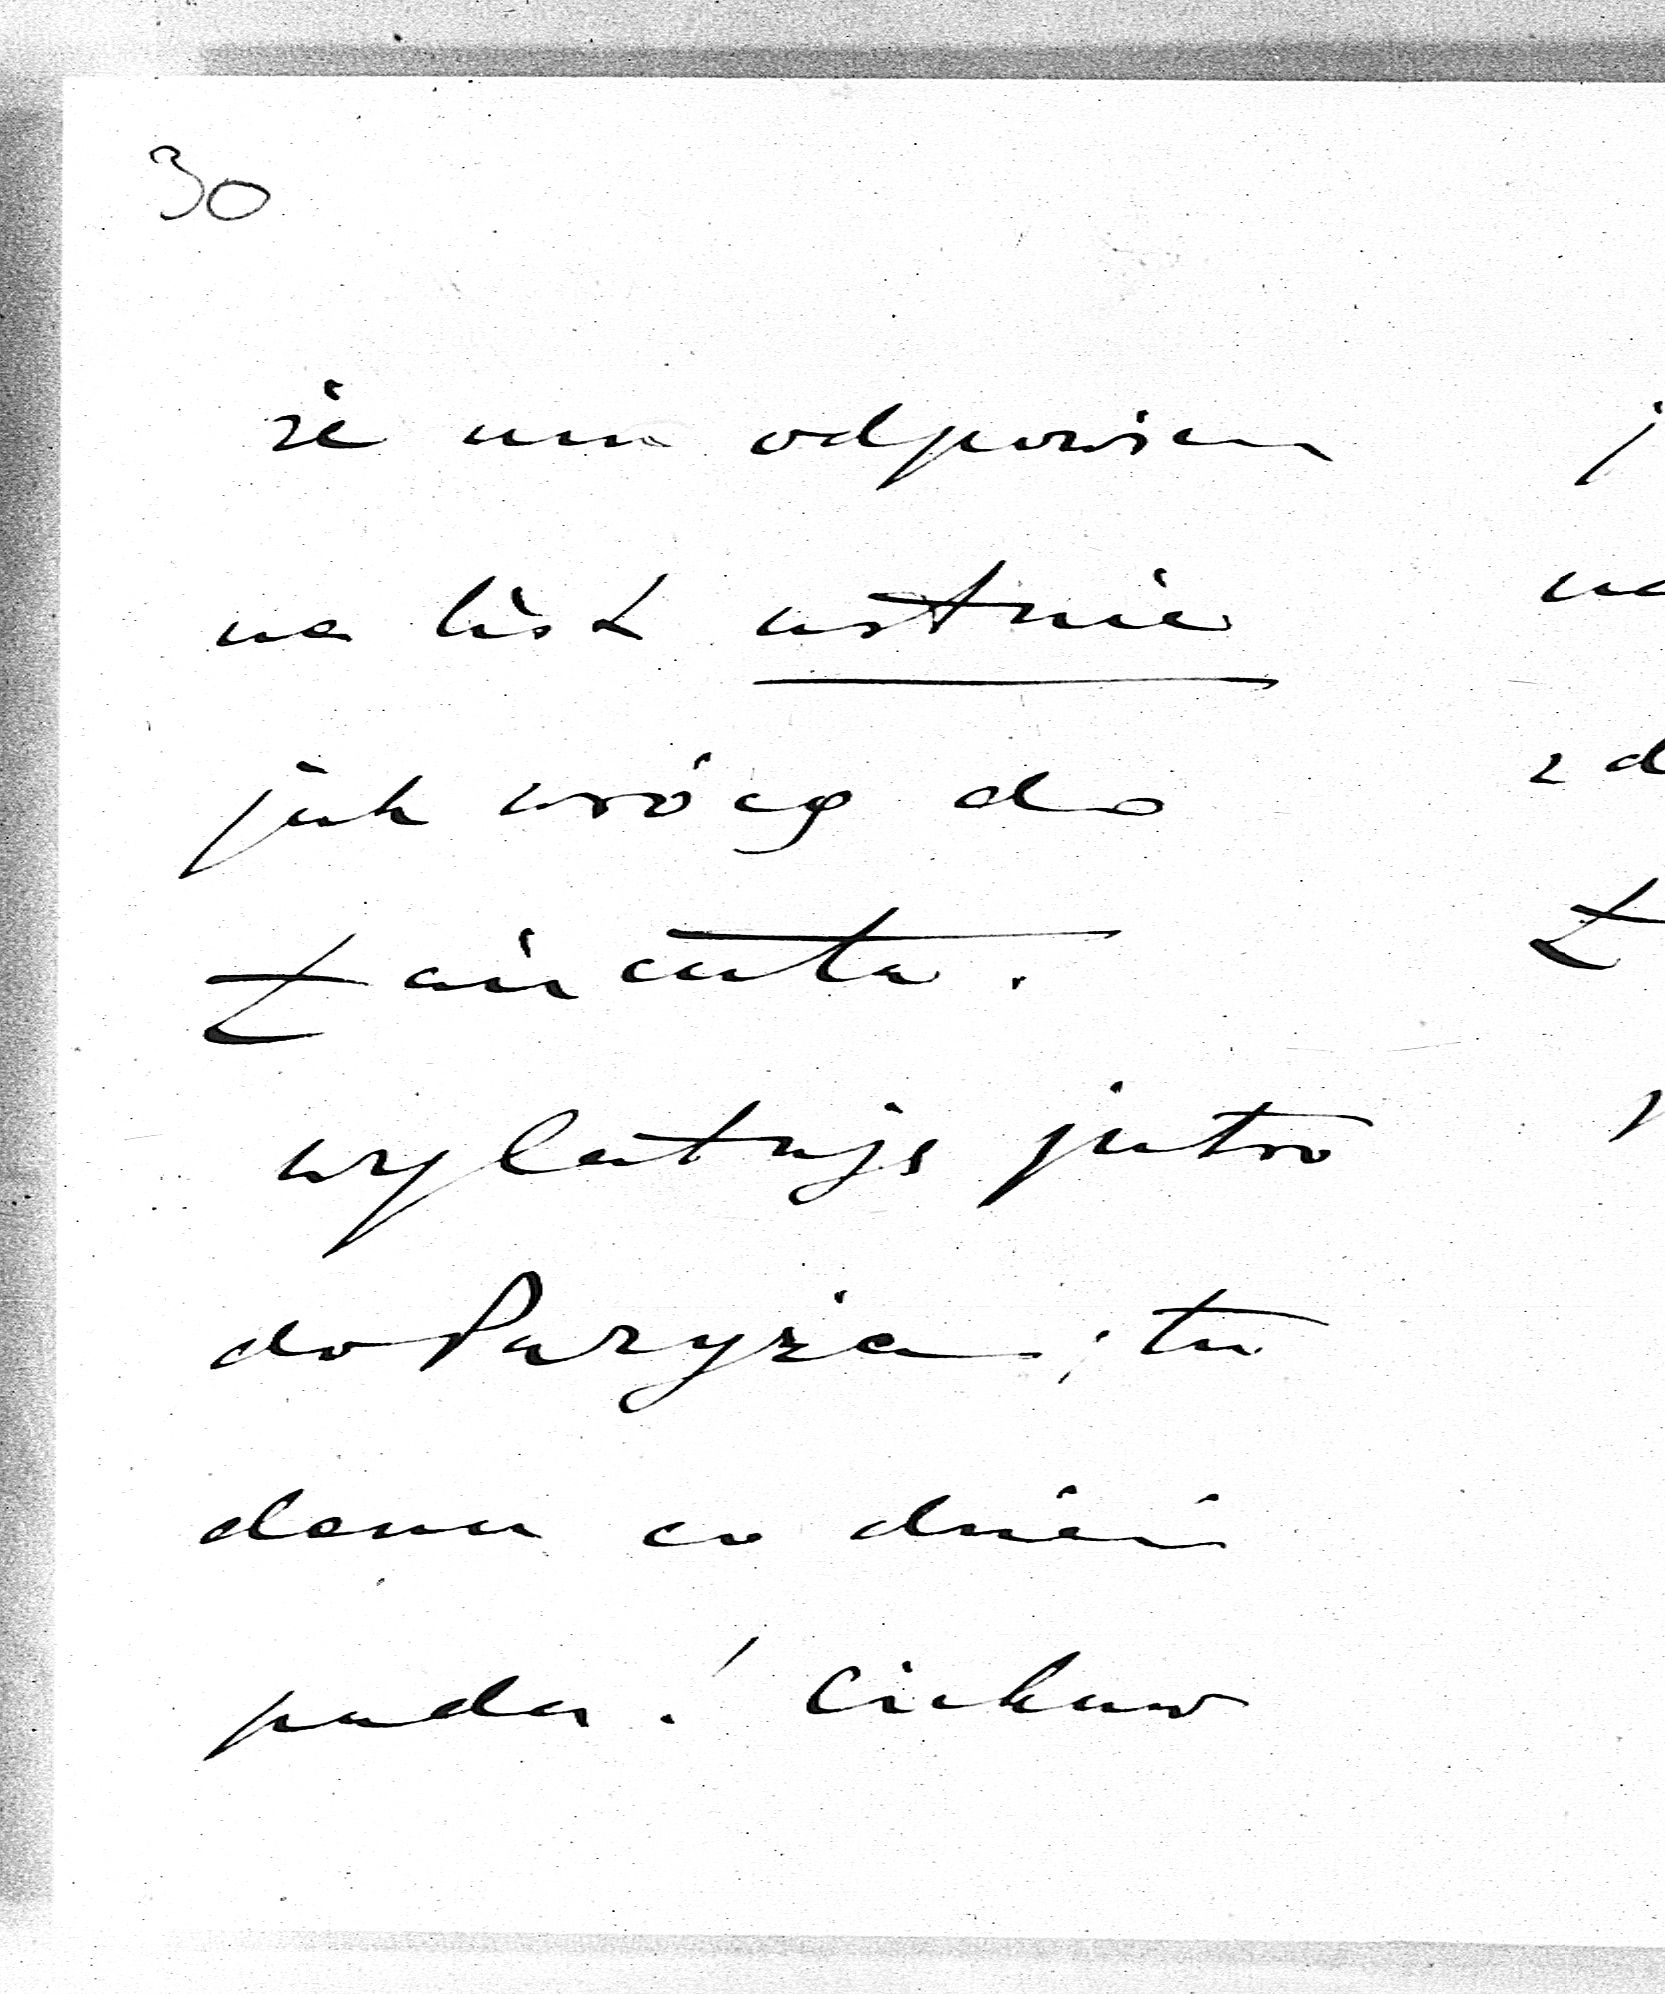 30
że mu odpowiem
na list ustnie
jak wrócę do
Łańcuta.
wylatuję jutro
do Paryża; tu
co dnień
pada! Ciekaw
j
na
zd
Ł